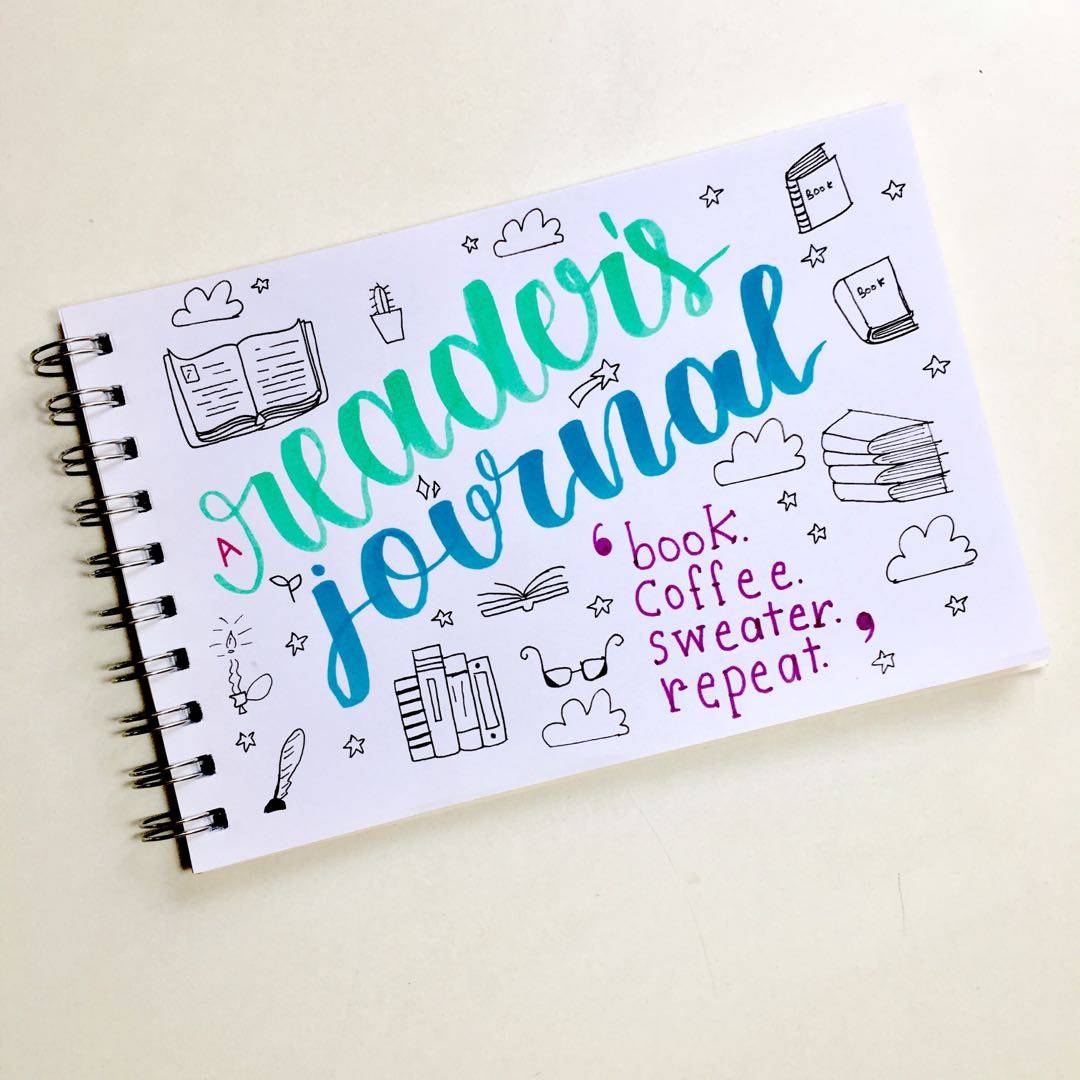 A reader's
journal
‘book.
coffee.
sweater.
repeat.’
BOOK
BOOK